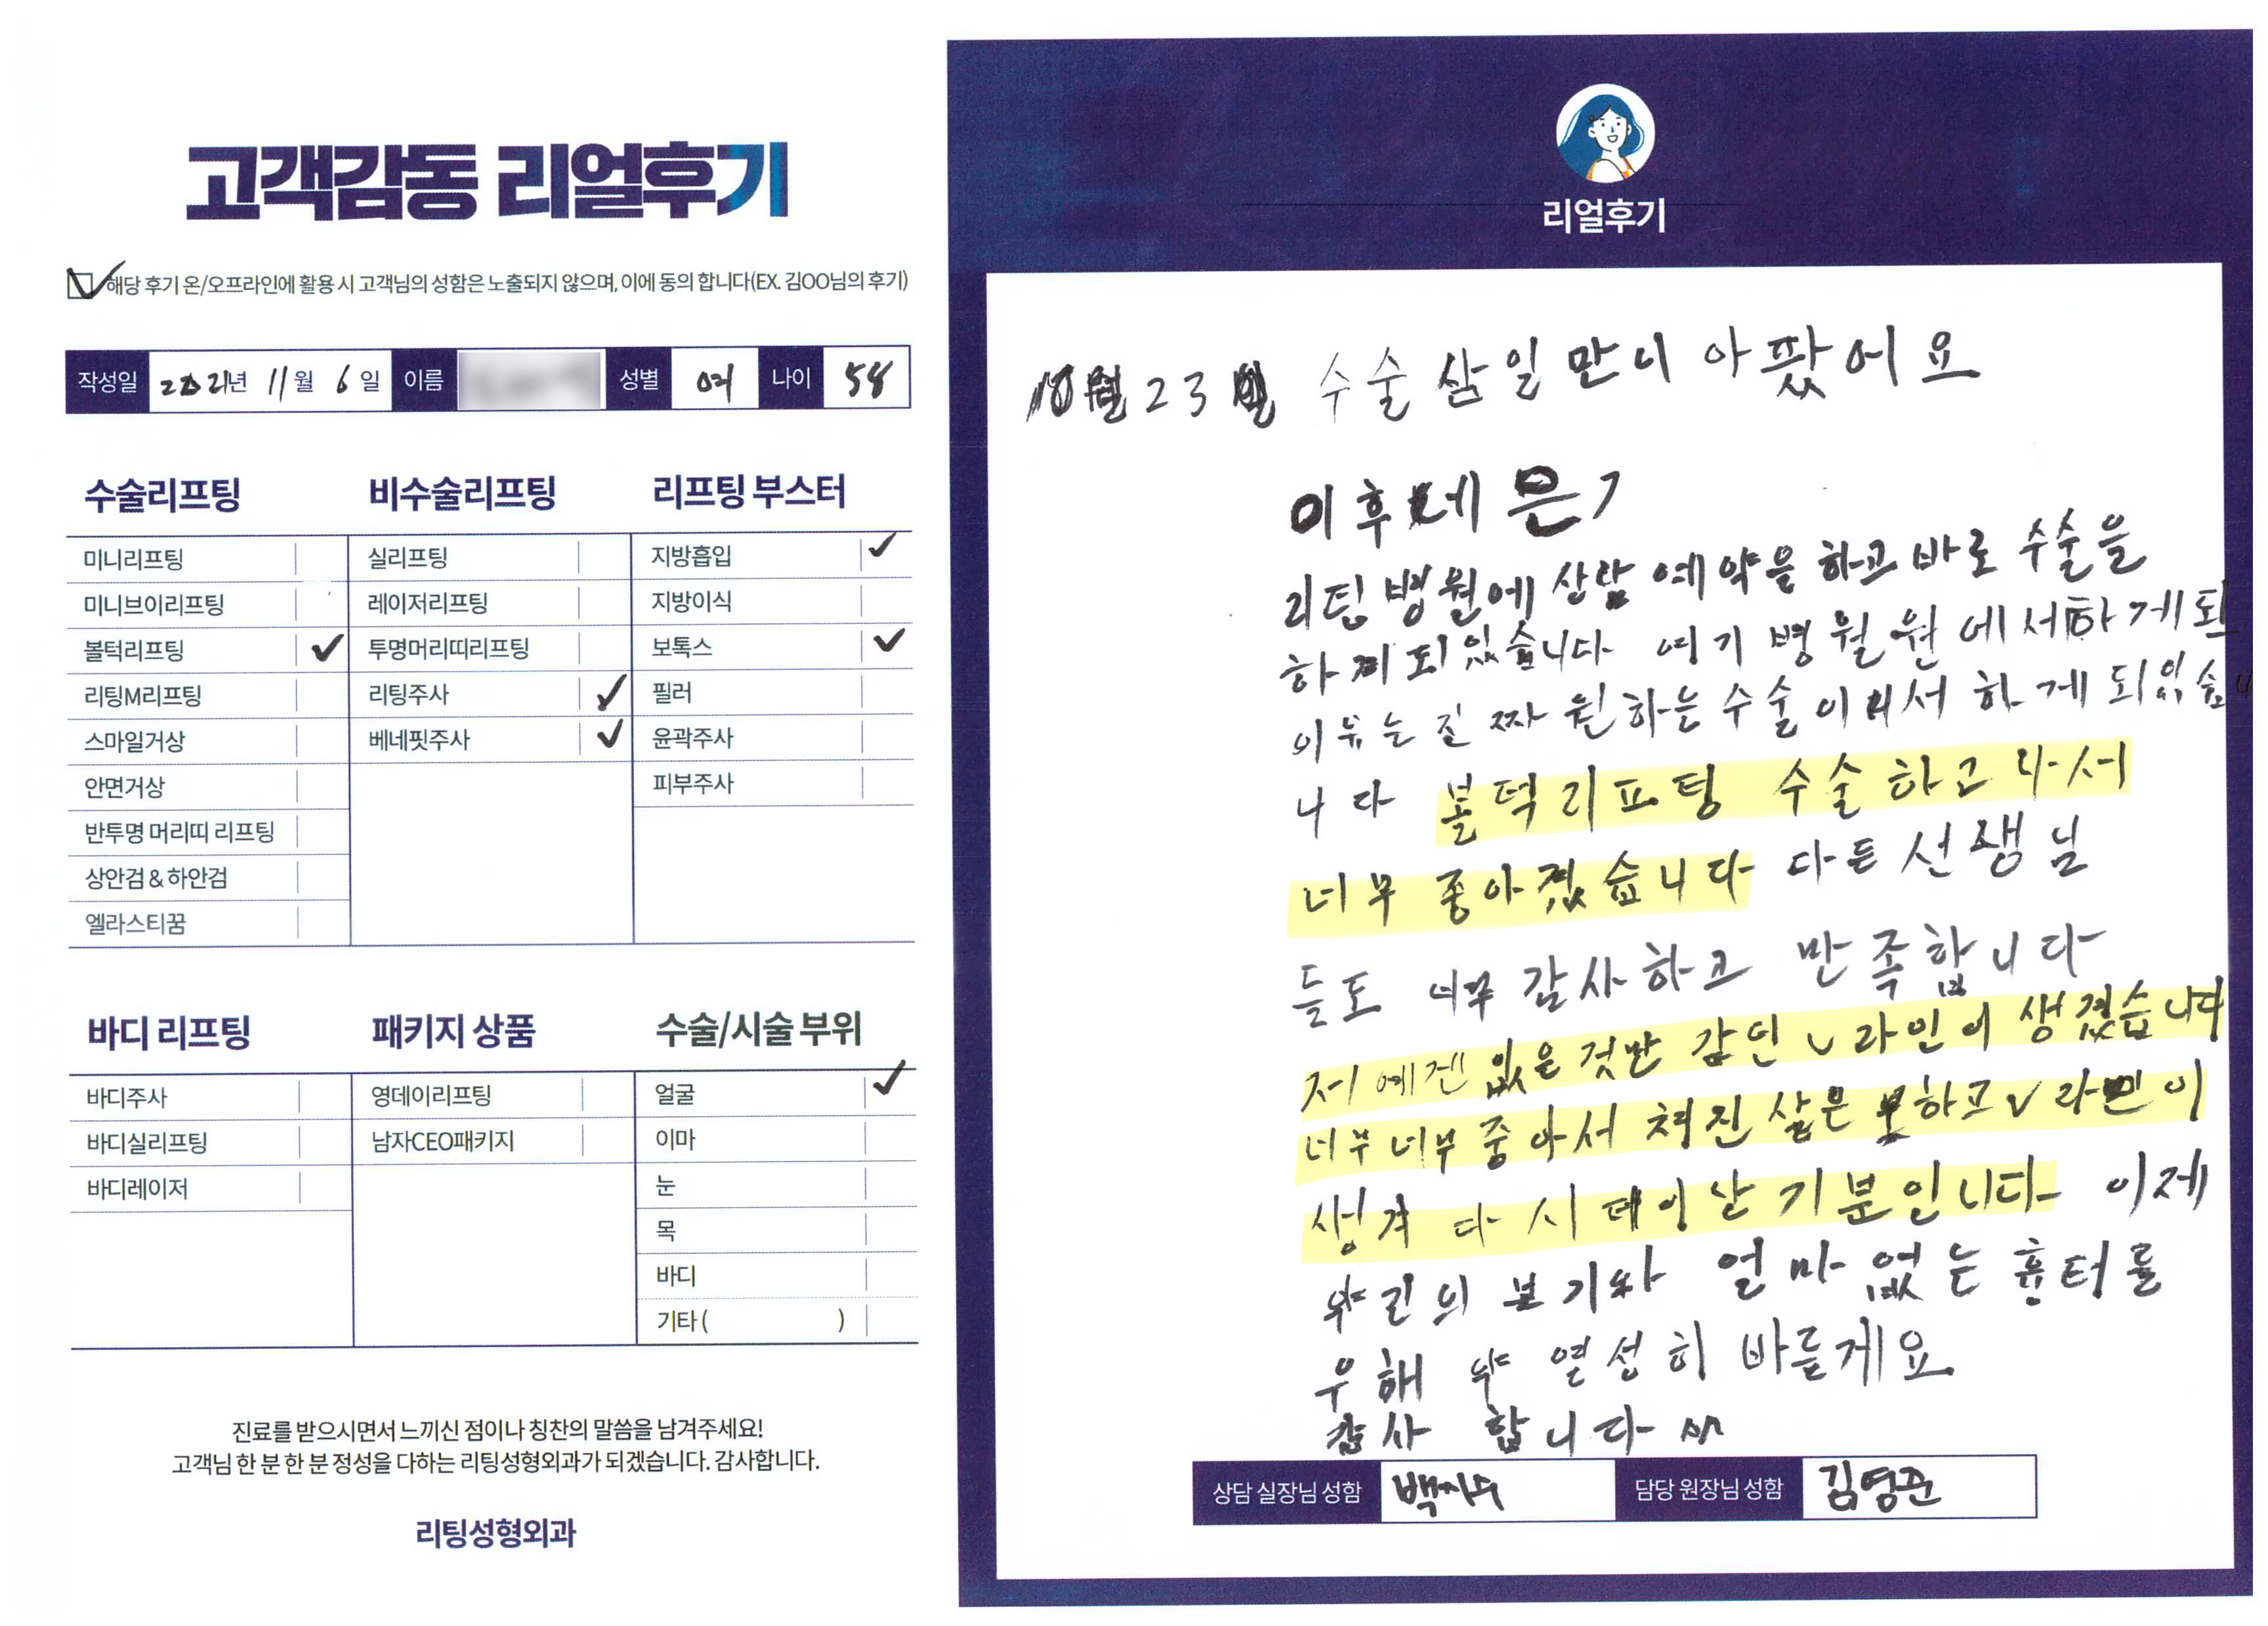 고객감동 리얼후기
해당 후기 온/오프라인에 활용 시 고객님의 성함은 노출되지 않으며, 이에 동의 합니다(EX. 김OO님의 후기)
작성일 2021년 11월 6일 이름 성별 여 나이 58
수술리프팅
미니리프팅
미니브이리프팅
볼턱리프팅
리팅M리프팅
스마일거상
안면거상
반투명 머리띠 리프팅
상안검 & 하안검
엘라스티꿈
비수술리프팅
실리프팅
레이저리프팅
투명머리띠리프팅
리팅주사
베네핏주사
리프팅 부스터
지방흡입
지방이식
보톡스
필러
윤곽주사
피부주사
바디 리프팅
바디주사
바디실리프팅
바디레이저
패키지 상품
영데이리프팅
남자CEO패키지
수술/시술 부위
얼굴
이마
눈
목
바디
기타 ( )
진료를 받으시면서 느끼신 점이나 칭찬의 말씀을 남겨주세요!
고객님 한 분 한 분 정성을 다하는 리팅성형외과가 되겠습니다. 감사합니다.
리팅성형외과
리얼후기
10월 23일 수술 삼일만니 아팠어요
이후
리팅병원에 상담 예약을 하고 바로 수술을
하게되있습니다 여기 병원 에서하게되
이유는 진짜 원하는 수술이 하게되있습
니다 볼턱리프팅 수술하고나서
너무 좋아졌습니다 다든 선생님
들도 너무 감사하고 만족합니다
저에겐 없은것만 감인 v라인이 생겼습니다
너무너무 좋아서 쳐진 살은 하고 v라인이
생겨 다시 태이난 기분인니다 이제
약긴의 붇기와 얼마없는 흉터를
우해 약 열성히 바를게요
감사 합니다 ^^
상담 실장님 성함 백지수 담당 원장님 성함 김영준